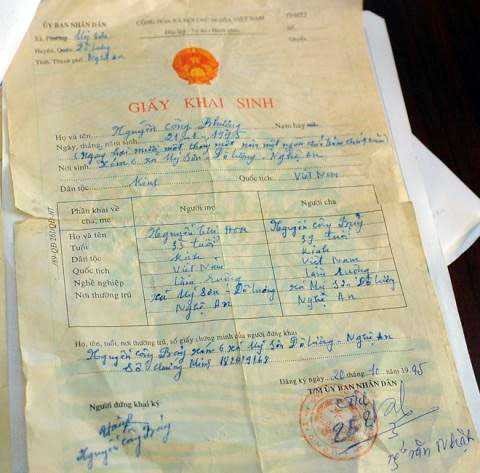 ỦY BAN NHÂN DÂN
CỘNG HÒA XÃ HỘI CHỦ NGHĨA VIỆT NAM
Độc lập - Tự do - Hạnh phúc
Xã, Phường: Mỹ Sơn
Huyện, Quận: Đô Lương
Tỉnh, Thành phố: Nghệ An
Số:
Quyển:
GIẤY KHAI SINH
Họ và tên: Nguyễn Công Phượng Nam hay nữ:
Ngày, tháng, năm sinh: 21-1-1995
Nơi sinh: Xóm 6 xã Mỹ Sơn - Đô Lương - Nghệ An
Dân tộc: Kinh Quốc tịch: Việt Nam
Phần khai về cha, mẹ Người mẹ Người cha
Họ và tên Nguyễn Thị Hoa Nguyễn Công Bảy
Tuổi 33 tuổi 37 tuổi
Dân tộc Kinh Kinh
Quốc tịch Việt Nam Việt Nam
Nghề nghiệp Làm ruộng Làm ruộng
Nơi thường trú xã Mỹ Sơn Đô Lương Nghệ An xã Mỹ Sơn Đô Lương Nghệ An
Họ, tên, tuổi, nơi thường trú, số giấy chứng minh của người đứng khai
Nguyễn Công Bảy xóm 6 xã Mỹ Sơn Đô Lương - Nghệ An
Số chứng minh
Đăng ký ngày 20 tháng 10 năm 1995
Người đứng khai ký
T/M ỦY BAN NHÂN DÂN
Nguyễn Công Bảy